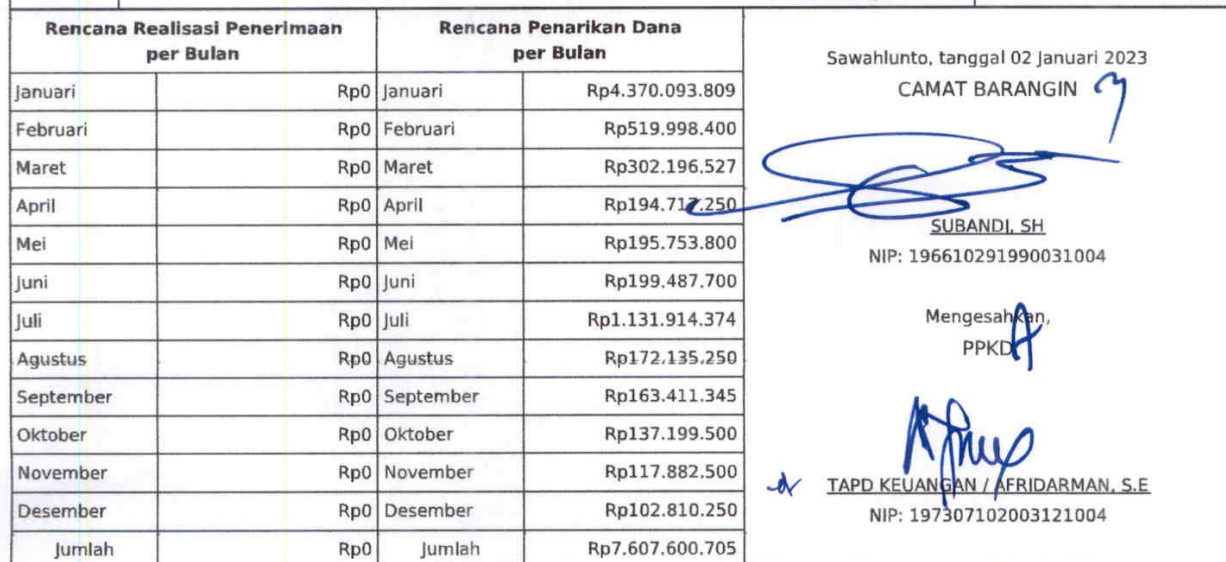 Rencana Realisasi Penerimaan
per Bulan
Rencana Penarikan Dana
per Bulan
Januari Rp0 Januari Rp4.370.093.809
Februari Rp0 Februari Rp519.998.400
Maret Rp0 Maret Rp302.196.527
April Rp0 April Rp194.717.250
Mei Rp0 Mei Rp195.753.800
Juni Rp0 Juni Rp199.487.700
Juli Rp0 Juli Rp1.131.914.374
Agustus Rp0 Agustus Rp172.135.250
September Rp0 September Rp163.411.345
Oktober Rp0 Oktober Rp137.199.500
November Rp0 November Rp117.882.500
Desember Rp0 Desember Rp102.810.250
Jumlah Rp0 Jumlah Rp7.607.600.705
Sawahlunto, tanggal 02 Januari 2023
CAMAT BARANGIN
SUBANDI, SH
NIP: 196610291990031004
Mengesahkan,
PPKD
TAPD KEUANGAN / AFRIDARMAN, S.E
NIP: 197307102003121004